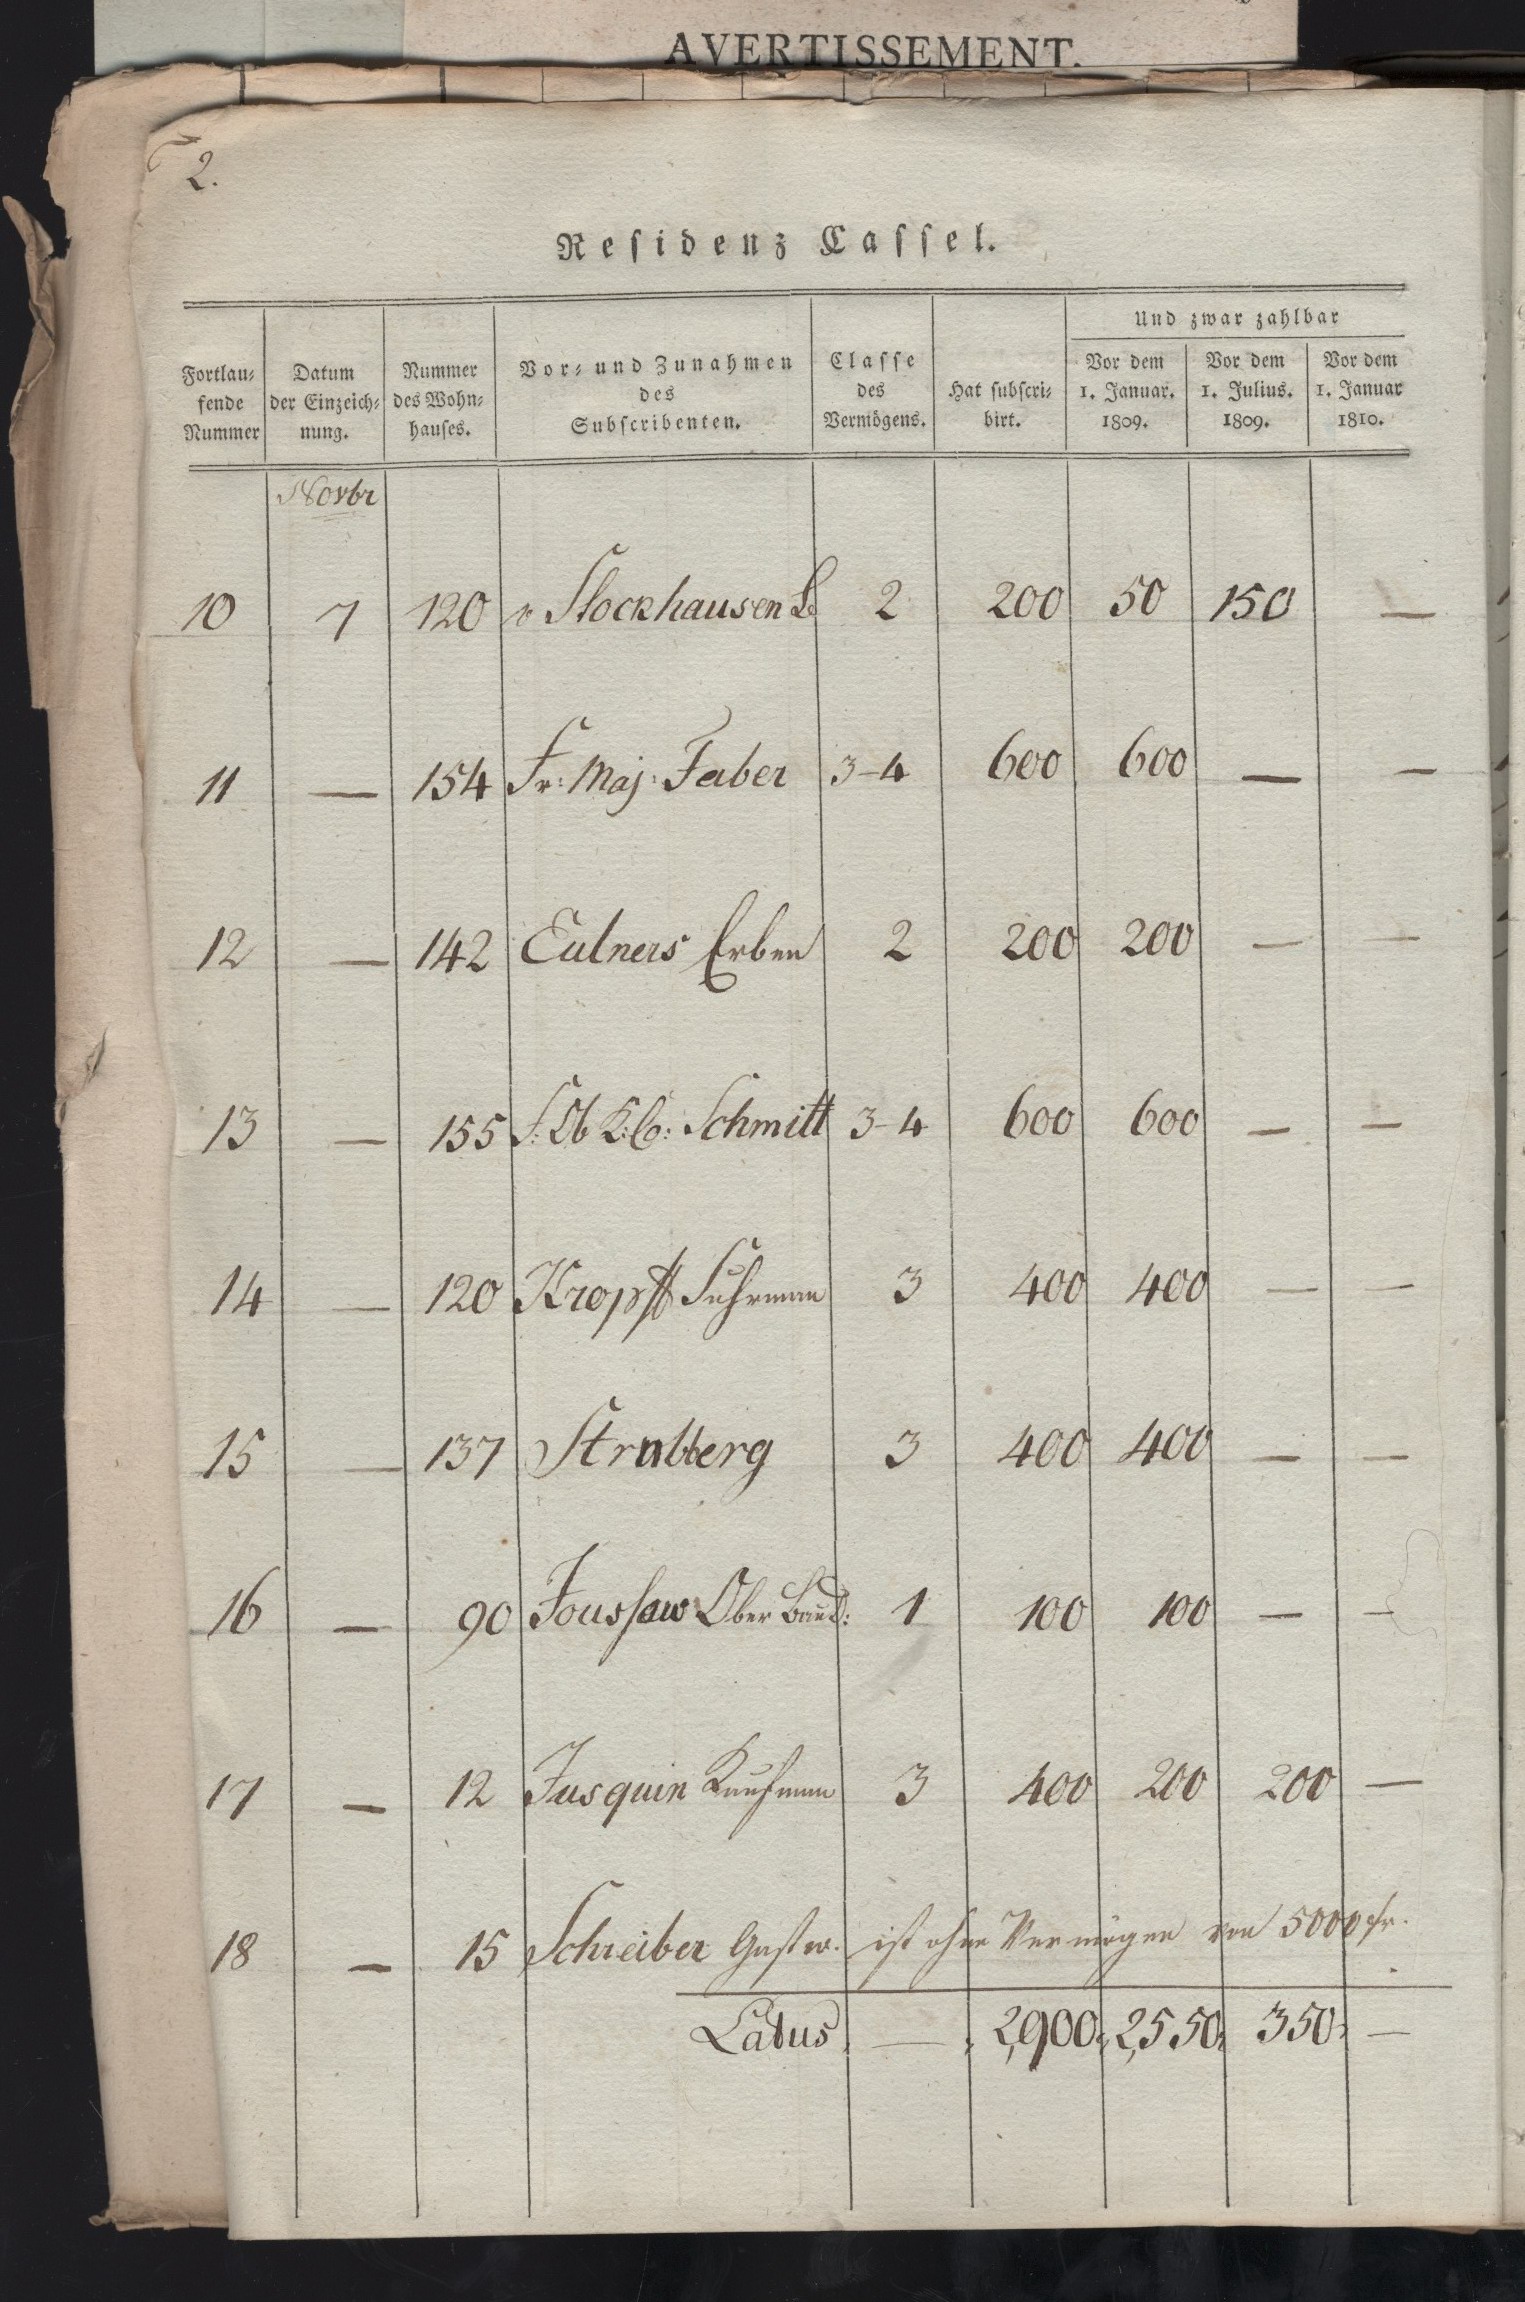 AVERTISSEMENT.
2.
Residenz Cassel.
Fortlau-fende Nummer | Datum der Einzeich-nung. | Nummer des Wohn-hauses. | Vor- und Zunahmen des Subscribenten. | Classe des Vermögens. | Hat subscri-birt. | Und zwar zahlbar
Vor dem 1. Januar. 1809. | Vor dem 1. Julius. 1809. | Vor dem 1. Januar 1810.
Novbr
10 7 120 v Stockhausen 2 200 50 150 —
11 — 154 Fr: Maj: Faber 3-4 600 600 — —
12 — 142 Eulners Erben 2 200 200 — —
13 — 155 Schmitt 3-4 600 600 — —
14 — 120 Kropff Fuhrman 3 400 400 — —
15 — 137 Strubberg 3 400 400 — —
16 — 90 Ober 1 100 100 — —
17 — 12 Jusquin Kaufman 3 400 200 200 —
18 — 15 Schreiber Gastw. ist ohne Vermögen von 5000 fr.
Latus. — 2,900. 2,550. 350. —